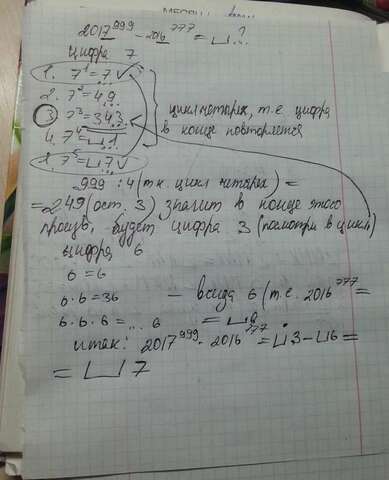 2017^999 - 2016^777 = ⊔?
цифра 7
1. 7^1 = 7 ✓
2. 7^2 = 49
3. 7^3 = 343
4. 7^4 = ⊔1
5. 7^5 = ⊔7 ✓
цикл четырех, т.е. цифра
в конце повторяется
999 : 4 (т.к. цикл четырех) =
= 249 (ост. 3) значит в конце этого
произв. будет цифра 3 (посмотри в цикл)
цифра 6
6 = 6
6·6 = 36 — всегда 6 (т.е. 2016^777 =
6·6·6 = ... 6 = ⊔6
итак: 2017^999 - 2016^777 = ⊔3 - ⊔6 =
= ⊔7